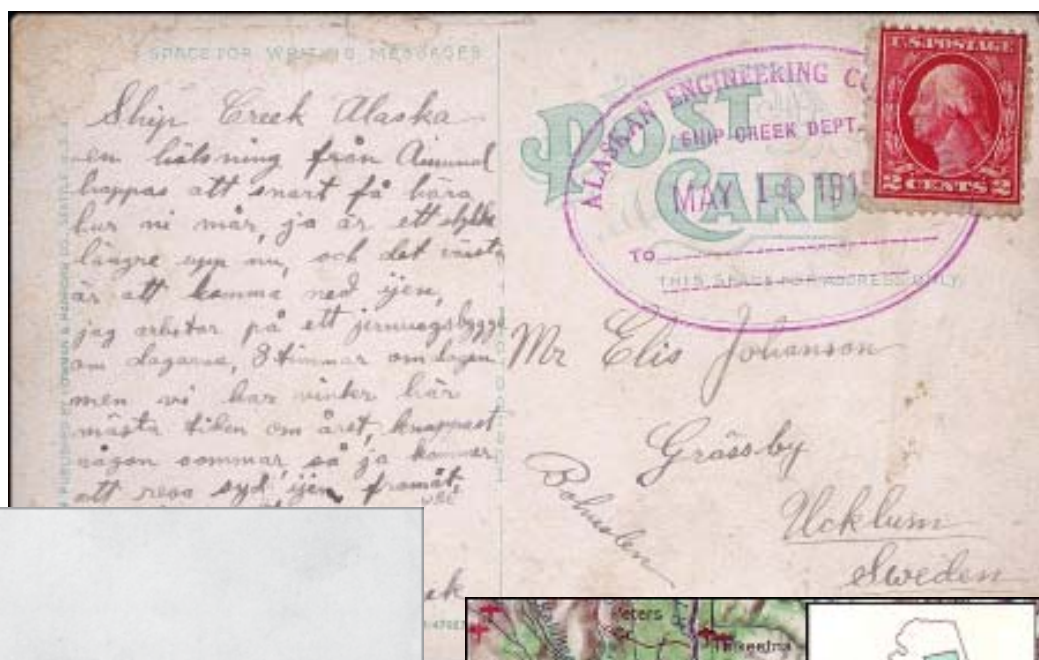 SPACE FOR WRITING MESSAGES
Ship Creek Alaska
en hälsning från
hoppas att snart få höra
hur ni mår, ja är ett stykke
längre upp nu, och det värsta
är att komma ned ijen,
jag arbetar på ett jernvagsbygge
om dagarna, 8 timmar om dagen
men vi har vinter här
mästa tiden om året, knappast
någon sommar, så ja kommer
att resa syd ijen framåt
POST
CARD
ALASKAN ENGINEERING
SHIP CREEK DEPT.
MAY
TO
THIS SPACE FOR ADDRESS ONLY
U.S. POSTAGE
2 CENTS 2
Mr Elis Johanson
Grässby
Ucklum
Sweden
Bohuslen
Peters